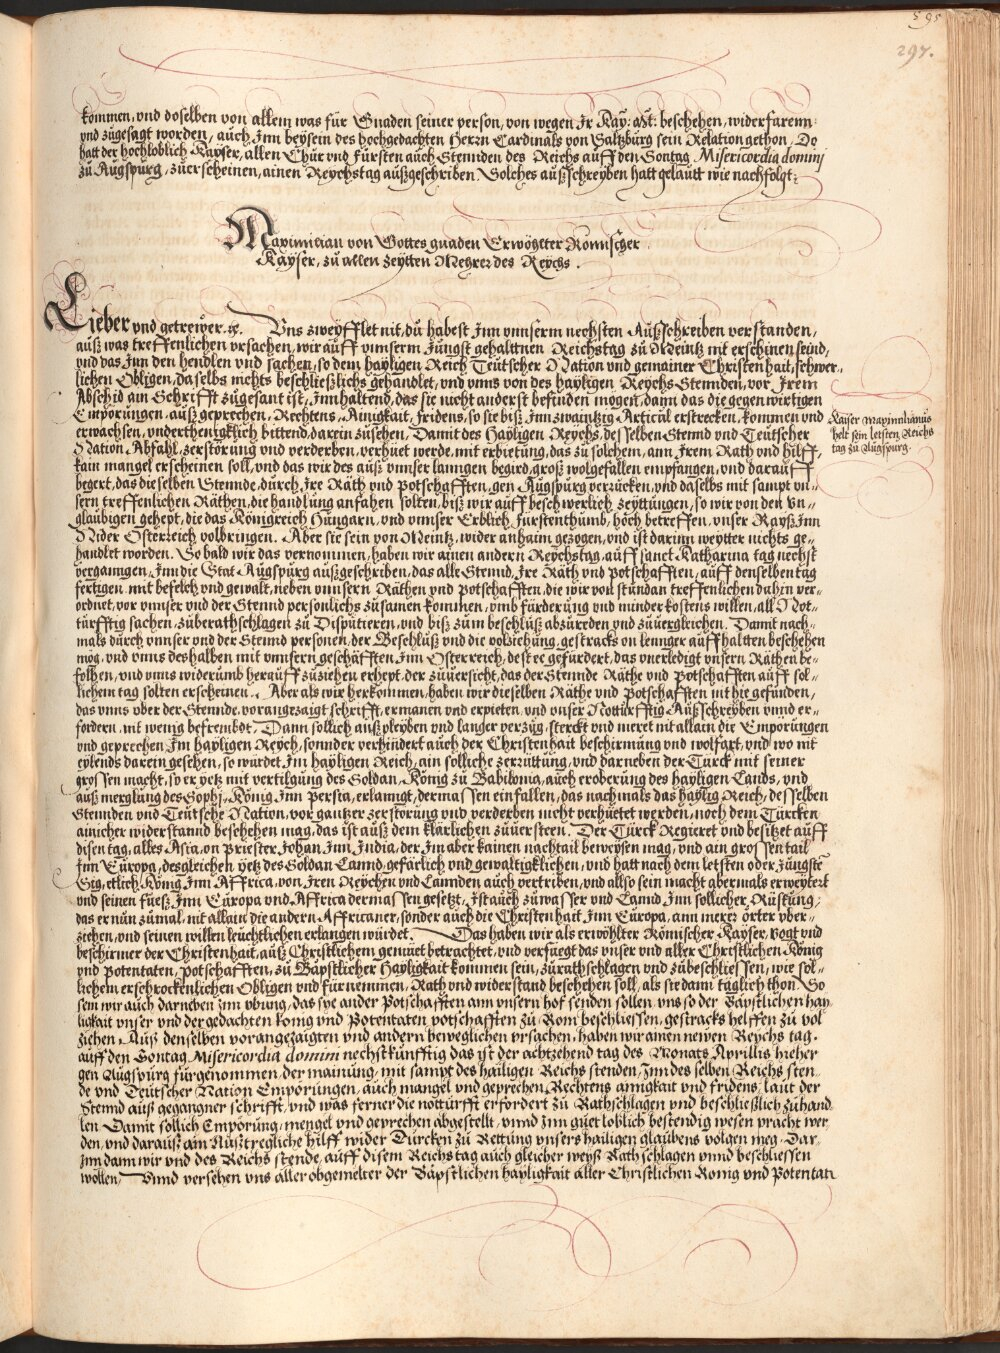 595
297.
kommen, und doselben von allem was für Gnaden seiner person, von wegen Ir Kay: Mt: beschehen, widerfarenn:
und zugesagt worden, auch Inn beysein des hochgedachten Herrn Cardinals von Saltzburg sein Relation gethon, Do
hatt der hochloblich Kayser, allen Chur und fürsten auch Stennden des Reichs auff den Sontag Misericordia domini
zu Augspurg, zuerscheinen, ainen Reychstag außgeschriben. Solches außschreyben hatt gelautt wie nachfolgt:
Maximilian von Gottes gnaden Erwöhlter Römischer
Kayser, zu allen zeytten Mehrer des Reychs.
Lieber und getrewer. etc. Uns zweyfflet nit, du habest Inn unnserm nechsten Außschreiben verstanden,
auß was treffenlichen ursachen, wir auff unnserm Jungst gehalttnen Reichstag zu Meintz nit erschinen seind,
und das Inn den hendlen und sachen, so dem hayligen Reich Teutscher Nation und gemainer Christenhait, schwer-
lichen Obligen, daselbs nichts beschließlichs gehandlet, und unns von des hayligen Reychs Stennden, vor Irem
Abschid ain Schrifft zugesant ist, Innhaltend, das sie nicht anderst befinden mögen, dann das die gegenwirtigen
Empörungen, auß geprechen, Rechtens, Ainigkait, fridens, so sie biß Inn zwaintzig Articul erstrecken, kommen und
erwachsen, underthenigklich bittend, darein zusehen, Damit des Hayligen Reychs, desselben Stennd und Teutscher
Nation, Abfahl, zerstörung und verderben, verhuet werde, mit erbietung, das zu solchem, ann Irem Rath und hilff,
kain mangel erscheinen soll, und das wir des auß unnser lanngen begird, groß wolgefallen empfangen, und darauff
begert, das dieselben Stennde, durch Ire Räth und Potschafften, gen Augspurg verrucken, und daselbs mit sampt un-
sern treffenlichen Räthen, die handlung anfahen solten, biß wir auff beschwerlich zeyttungen, so wir von den Un-
glaubigen gehept, die das Königreich Hungarn, und unnser Erblich fürstenthumb, hoch betreffen, unser Rayß Inn
Nider Osterreich volbringen. Aber sie sein von Meintz, wider anhaim gezogen, und ist darinn weytter nichts ge-
handlet worden. So bald wir das vernommen, haben wir ainen andern Reychstag, auff sanct Katharina tag nechst
vergangen, Inn die Stat Augspurg außgeschriben, das alle Stennd, Ire Räth und Potschafften, auff denselben tag
fertigen mit befelch und gewalt, neben unnsern Räthen und Potschafften, die wir von stundan treffenlichen dahin ver-
ordnet, vor unnser und der Stennd personlichs zusamen kommen, umb fürderung und minder kostens willen, all Not-
turfftig sachen, zuberathschlagen zu Disputieren, und biß zum beschluß abzureden und zuuergleichen. Damit nach-
mals durch unnser und der Stennd personen, der Beschluß und die volziehung, gestracks on lenniger auffhaltten beschehen
mög, und unns deshalben mit unnsern geschäfften Inn Osterreich, dest ee gefürdert, das unerledigt unsern Räthen be-
folhen, und unns widerumb herauff zuziehen erhept, der zuuersicht, das der Stennde Räthe und Potschafften auff sol-
lichem tag solten erscheinen. Aber als wir herkommen, haben wir dieselben Räthe und Potschafften nit hie gefunden,
das unns ober der Stennde, vorangezaigt schrifft, ermanen und erpieten, und unser Notturfftig Außschreyben unnd er-
fordern, nit wenig befrembdt, Dann sollich außpleyben und langer verzug, sterckt und meret nit allain die Empörungen
und geprechen Im hayligen Reych, sonnder verhindert auch der Christenhait beschirmung und wolfart, und wo nit
eylends darein gesehen, so wurdet Im hayligen Reich, ain solliche zerruttung, und darneben der Türck mit seiner
grossen macht, so er yetz mit vertilgung des Soldan, König zu Babilonia, auch eroberung des hayligen Lands, und
auß merglung des Sophi, König Inn Persia, erlanngt, dermassen einfallen, das nachmals das haylig Reich, desselben
Stennden und Teutsche Nation, vor gantzer zerstörung und verderben nicht verhüetet werden, noch dem Türcken
ainicher widerstannd beschehen mag, das ist auß dem klärlichen zuuersteen. Der Türck Regieret und besitzet auff
disen tag, alles Asia, on Priester Johan Inn India, der Im aber kainen nachtail beweysen mag, und ain grossen tail
Inn Europa, desgleichen yetz des Soldan Lannd, gefärlich und gewaltigklichen, und hatt nach dem letsten oder Jungste
Sig, etlich König Inn Affrica, von Iren Reychen und Lannden auch vertriben, und also sein macht abermals erweytert
und seinen fueß Inn Europa und Affrica dermassen gesetzt, Ist auch zu wasser und Lannd Inn sollicher Rüstung,
das er nun zumal, nit allain die andern Affricaner, sonder auch die Christenhait Inn Europa, ann merer örter uber-
ziehen, und seinen willen leuchtlichen erlangen würdet. Das haben wir als erwöhlter Römischer Kayser, Vogt und
beschirmer der Christenhait, auß Christlichem gemuet betrachtet, und verfuegt das unser und aller Christlichen König
und Potentaten, Potschafften, zu Bäpstlicher Hayligkait kommen sein, zu rathschlagen und zubeschliessen, wie sol-
lichem erschrockenlichen Obligen und fürnemmen, Rath und widerstand beschehen soll, als sie dann täglich thon. So
sein wir auch darneben inn übung, das sye ander Potschafften ann unsern hof senden sollen, uns so der Bäpstlichen hay
ligkait unser und der gedachten konig und Potentaten potschafften zu Rom beschliessen, gestracks helffen zu vol
ziehen. Auß denselben vorangezaigten und andern beweglichen ursachen, haben wir ainen newen Reychs tag.
auff den Sontag Misericordia domini nechstkünfftig das ist der achtzehend tag des Monats Aprillis hieher
gen Augspurg fürgenommen der mainung, mit sampt des hailigen Reichs stenden, Inn des selben Reichs sten
de und Teutscher Nation Empörungen, auch mangel und geprechen Rechtens ainigkait und fridens, laut der
Stennd auß gegangner schrifft, und was ferner die notturfft erfordert zu Rathschlagen und beschließlich zuhand
len Damit sollich Empörung, mengel und geprechen abgestellt, unnd Inn guet loblich bestendig wesen pracht wer
den, und darauß ain Außtregliche hilff wider Durcken zu Rettung unsers hailigen glaubens volgen meg. Dar
Inn dann wir und des Reichs stende, auff disem Reichstag auch gleicher weyß Rathschlagen unnd beschliessen
wollen, Unnd versehen uns aller obgemelter der Bäpstlichen hayligkait aller Christlichen Konig und Potentatn
Kaiser Maximilianus
helt sein letsten Reichs
tag zu Augspurg.